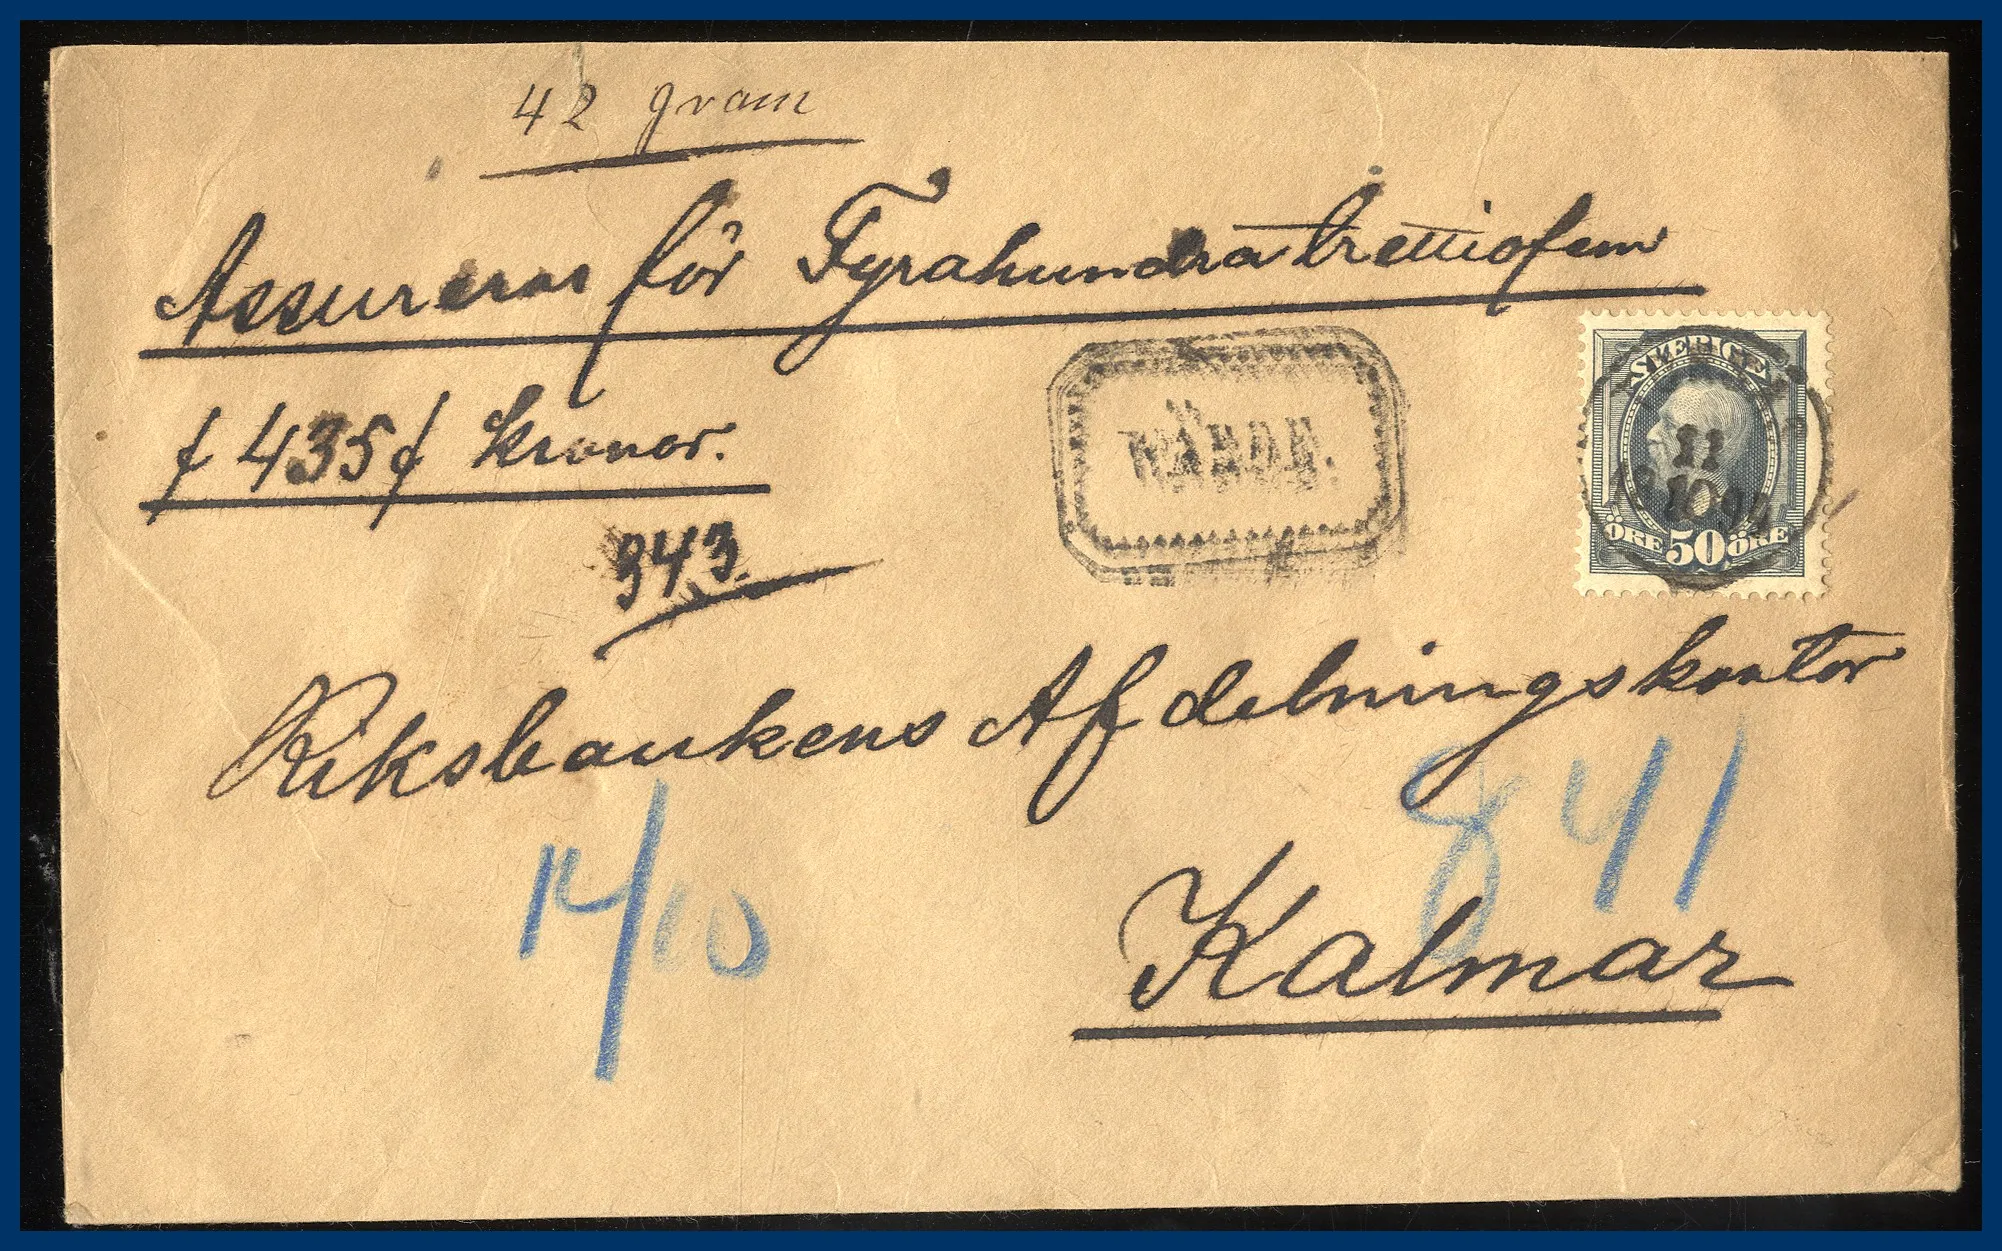 42 gram
Assureras för Fyrahundratrettiofem
f 435 f kronor.
343.
SVERIGE
11
10 94
ÖRE 50 ÖRE
Riksbankens Afdelningskontor
841
14/10
Kalmar